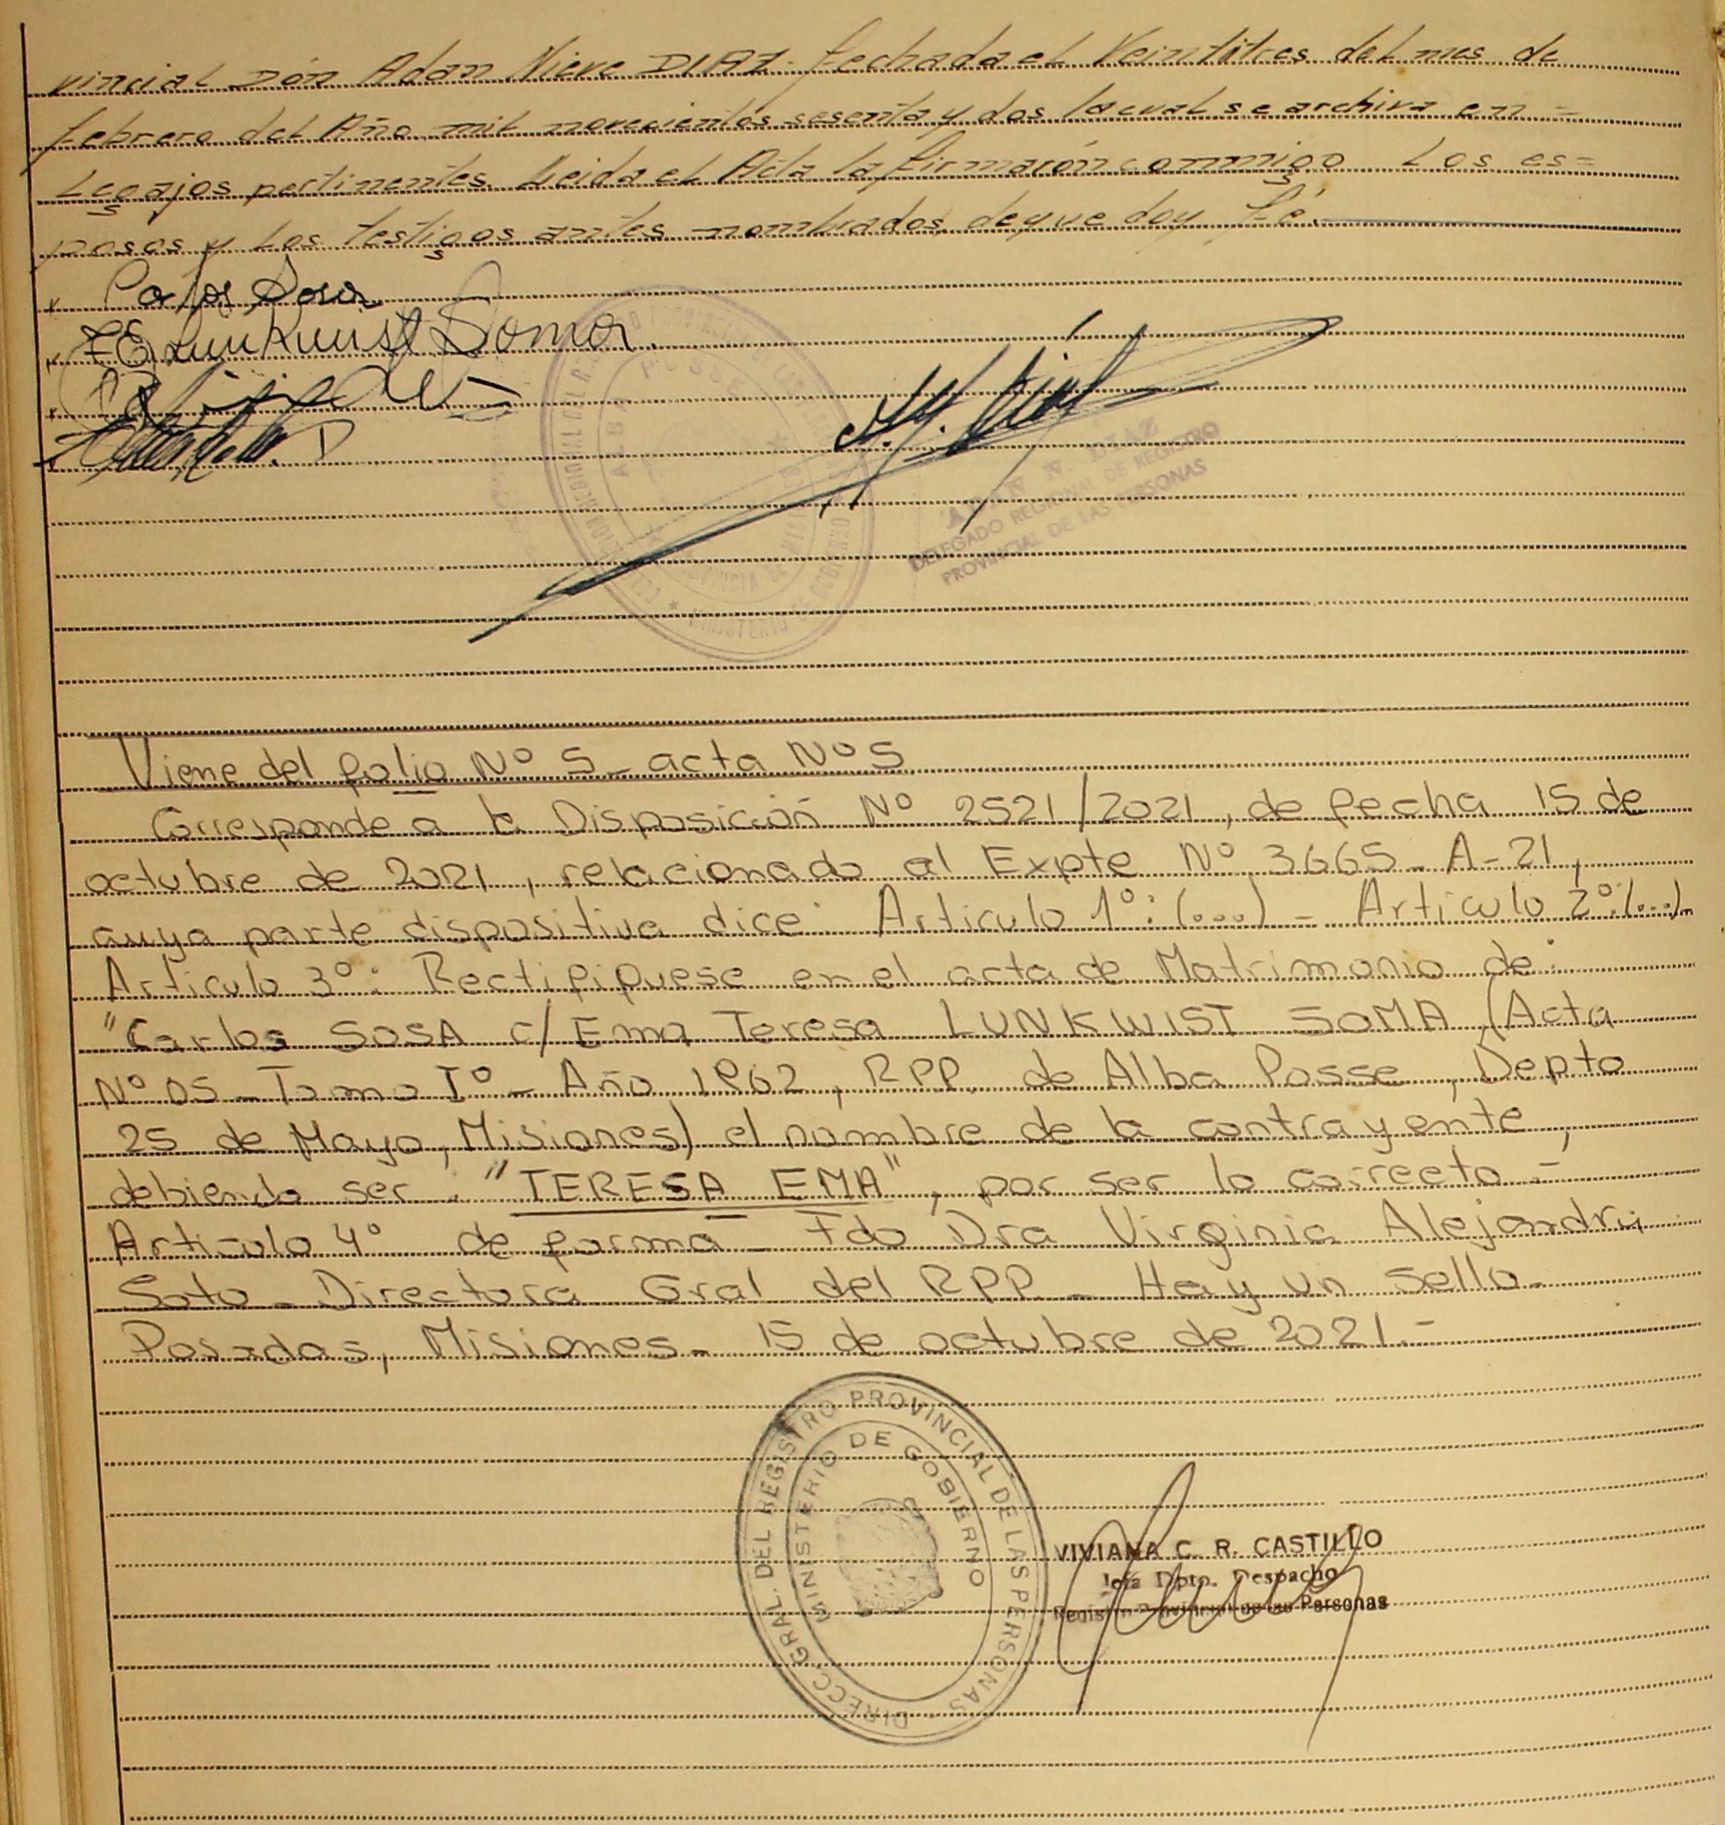 vincial Don Adan Nieve DIAZ. fechada el Veintitres del mes de
febrero del Año mil novecientos sesenta y dos la cual se archiva en =
Legajos pertinentes. Leida el Acta la firmarón conmigo Los es=
posos y Los testigos antes nombrados, de que doy fé.
Carlos Sosa
TELunkuist Somā
ALBA POSSE
ADAN N. DIAZ
DELEGADO REGIONAL DE REGISTRO
PROVINCIAL DE LAS PERSONAS
Viene del folio Nº 5 - acta Nº 5
Corresponde a la Disposición Nº 2521/2021, de fecha 15 de
octubre de 2021, relacionado al Expte Nº 3665 - A - 21,
cuya parte dispositiva dice: Articulo 1º: (...) - Articulo 2º: (...)-
Articulo 3º: Rectifiquese en el acta de Matrimonio de:
"Carlos SOSA c/ Ema Teresa LUNKWIST SOMA (Acta
Nº 05 - Tomo Iº - Año 1962, RPP. de Alba Posse, Depto
25 de Mayo, Misiones) el nombre de la contrayente,
debiendo ser: "TERESA EMA", por ser lo correcto.-
Articulo 4º de forma - Fdo Dra Virginia Alejandra
Soto - Directora Gral del RPP. - Hay un sello.
Posadas, Misiones - 15 de octubre de 2021.-
DIRECC. GRAL. DEL REGISTRO PROVINCIAL DE LAS PERSONAS
MINISTERIO DE GOBIERNO
VIVIANA C. R. CASTILLO
Jefa Dpto. Despacho
Registro Provincial de las Personas